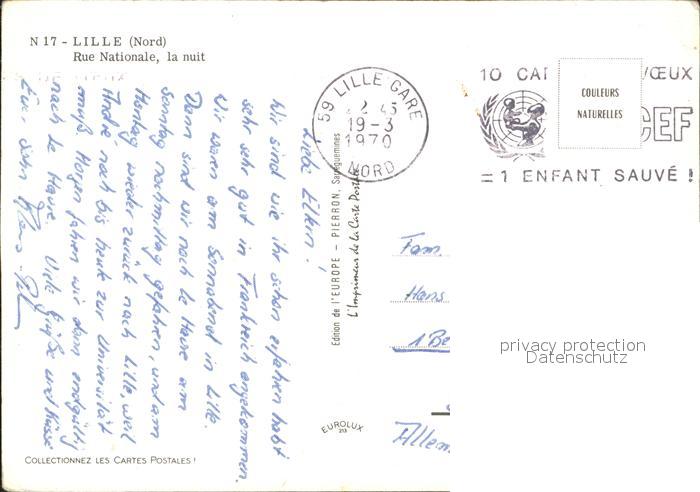 N 17 - LILLE (Nord)
Rue Nationale, la nuit
59 LILLE GARE
19-3
1970
NORD
10 CAR
VŒUX
COULEURS
NATURELLES
CEF
= 1 ENFANT SAUVÉ !
Liebe Eltern!
Wir sind wie ihr schon erfahren habt
sehr sehr gut in Frankreich angekommen.
Wir waren am Sonnabend in Lille.
Dann sind wir nach Le Havre am
Sonntag nachmittag gefahren, und am
Montag wieder zurück nach Lille, weil
André noch bis heute zur Universität
muß. Morgen fahren wir dann endgültig
nach Le Havre. Viele Grüße und Küsse
Euer Sohn
Edition de l'EUROPE - PIERRON, Sarreguemines
L'Imprimeur de la Carte Postale
Fam.
Hans
1 Be
Allem
EUROLUX
COLLECTIONNEZ LES CARTES POSTALES !
privacy protection
Datenschutz